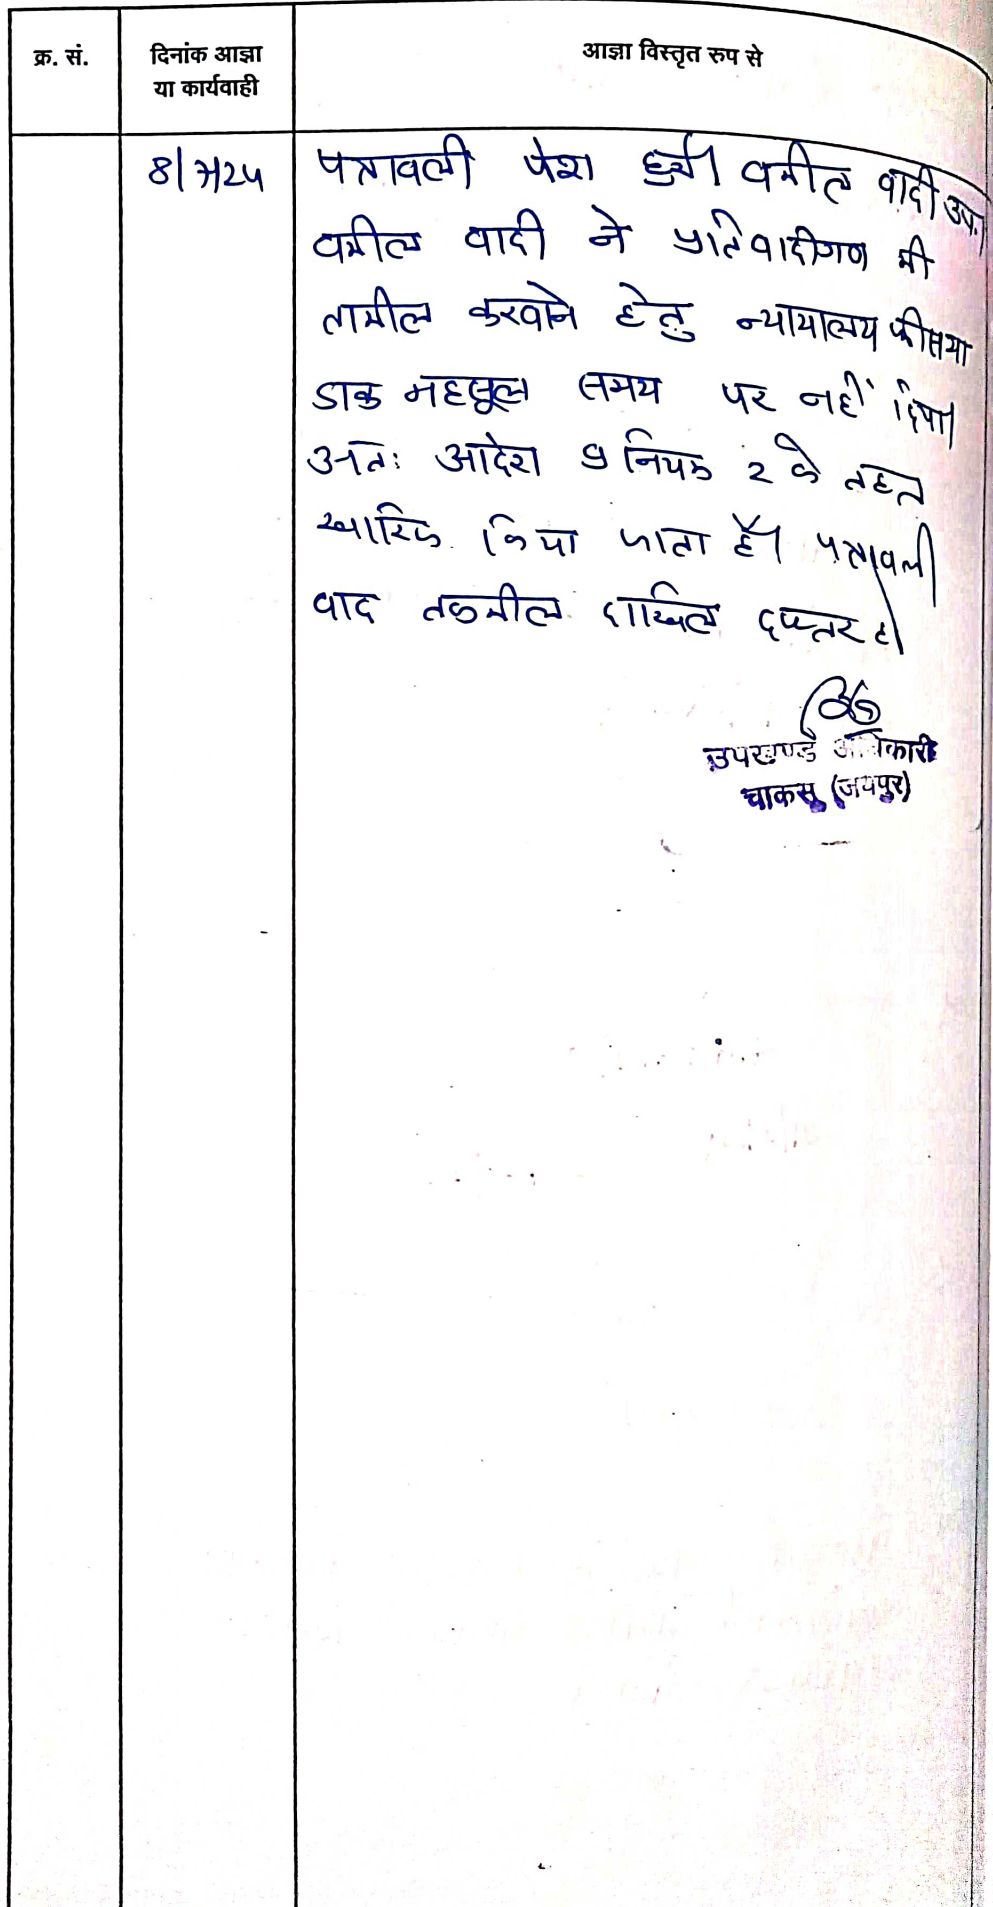 क्र. सं.
दिनांक आज्ञा
या कार्यवाही
आज्ञा विस्तृत रुप से
8/7/24 पत्रावली पेश हुई। वकील वादी उप.
वकील वादी ने प्रतिवादीगण की
तामील करवाने हेतु न्यायालय फीस या
डाक महसूल समय पर नहीं दिया।
अतः आदेश 9 नियम 2 के तहत
खारिज किया जाता है। पत्रावली
वाद तकमील दाखिल दफ्तर हो
उपखण्ड अधिकारी
चाकसू (जयपुर)